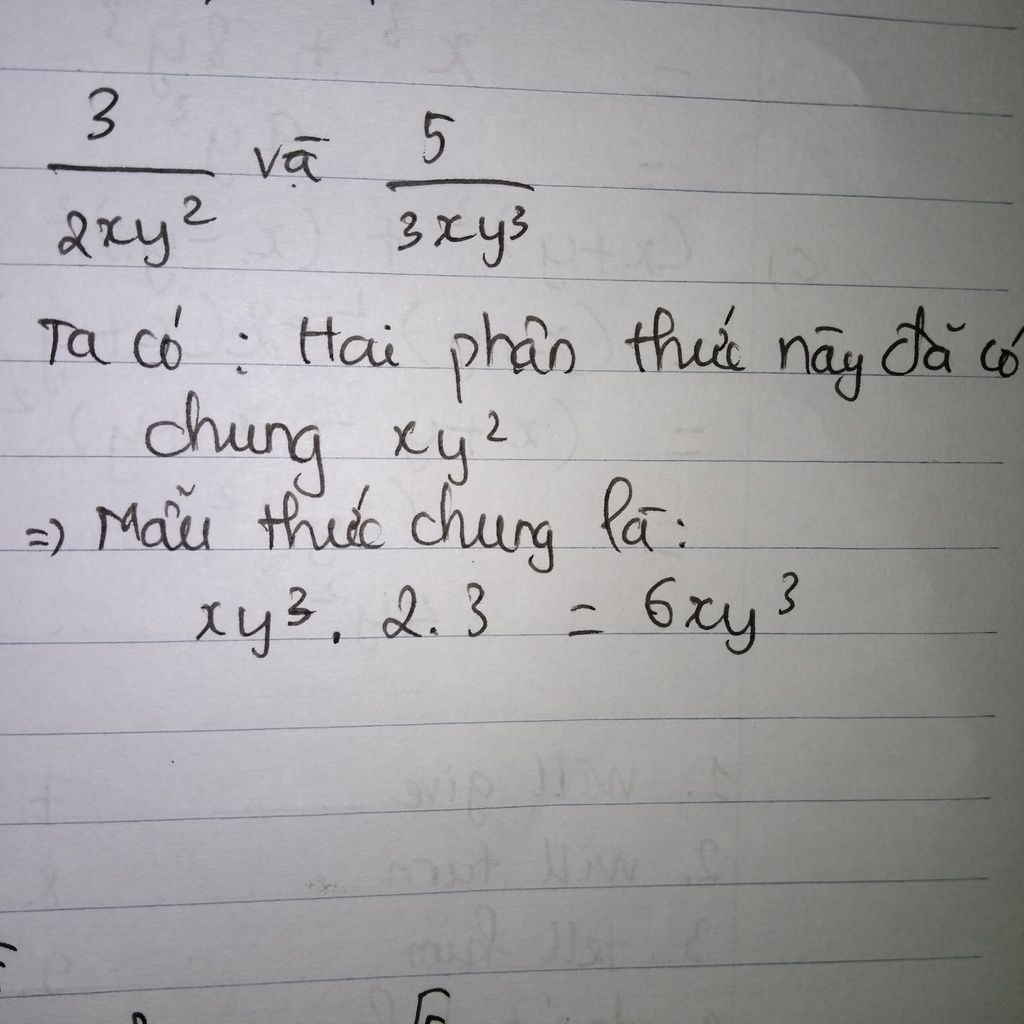 3/(2xy²) và 5/(3xy³)
Ta có : Hai phân thức này đã có
chung xy²
=> Mẫu thức chung là:
xy³. 2. 3 = 6xy³